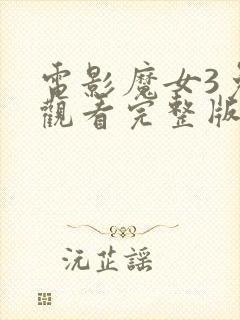 電影魔女3
觀看完整版
沅芷謠